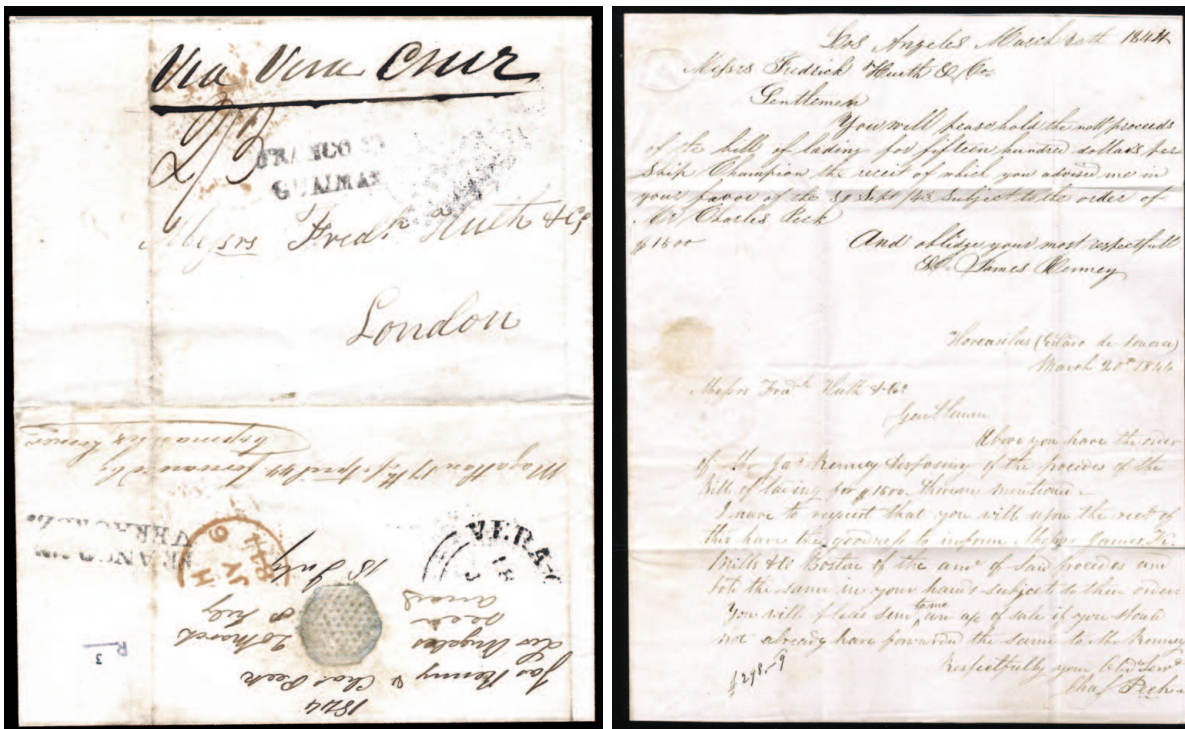 Via Vera Cruz
2/3
FRANCO EN
GUAIMAS
Messrs Fredk Huth & Co
London
Mazatlan 17th of April 44 forwarded by
FRANCO EN
VERACRUZ
VERA
18 July
1844
Jas Kenny & Chas Peck
Los Angeles
20 March
8 July
R
3
Los Angeles March 20th 1844
Messrs Fredrick Huith & Co
Gentlemen
You will pease hold the nett proceeds
of the bill of lading for fifteen hundred dollars per
Ship Champion the receit of which you advised me in
your favor of the 30 Sept /43 Subject to the order of
Mr Charles Peck
$1500 And oblidge your most respectfull
&c. James Kenney
Horcasitas (Estado de Sonora)
March 20th 1844
Messrs Fredk Huth & Co
Gentlemen
Above you have the order
of Mr Jas Kenney disposing of the procedes of the
Bill of lading for $1500 therein mentioned
I have to request that you will upon the receit of
this have the goodness to inform Messrs James
Mills & Co Boston of the amt of said procedes and
the same in your hands subject to their order
You will pleas send to me an a/c of sale if you should
not already have forwarded the same to Mr Kenney
Respectfully your Obt Servt
£298-9 Chas Peck